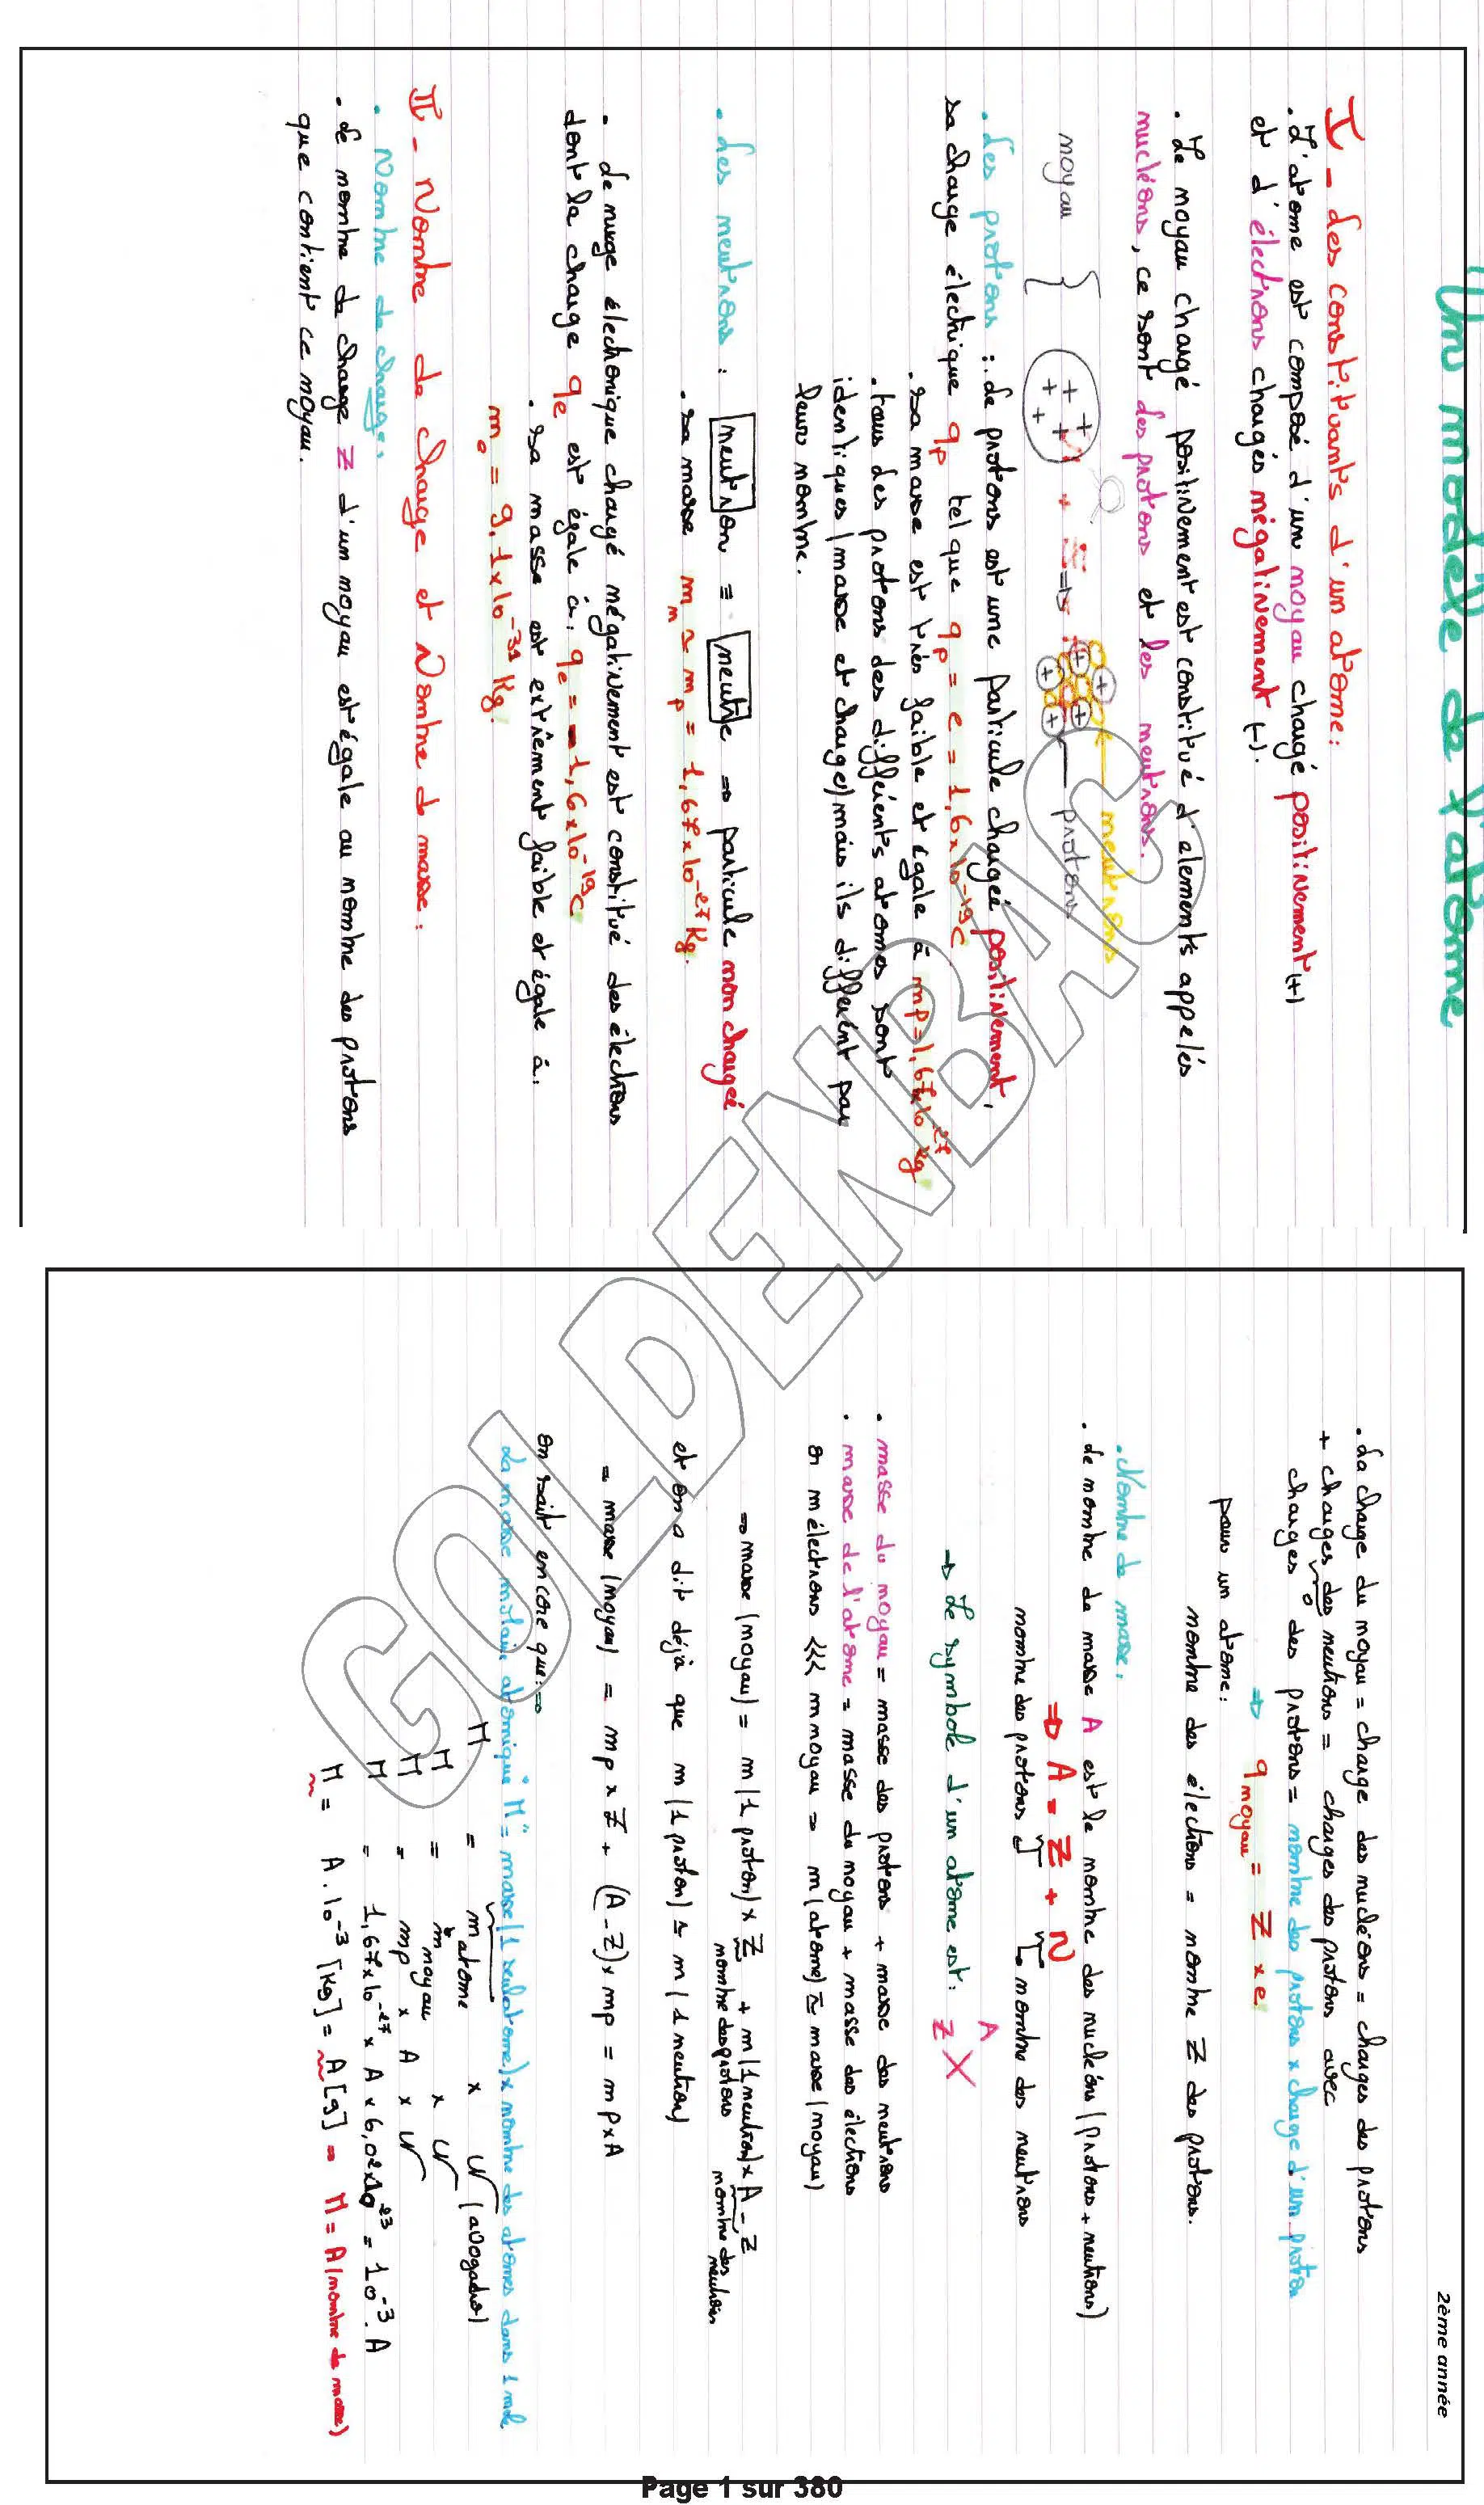 Un modèle de l'atome
I - Les constituants d'un atome:
. L'atome est composé d'un noyau chargé positivement (+)
et d'électrons chargés négativement (-).
. Le noyau chargé positivement est constitué d'elements appelés
nucléons, ce sont des protons et les neutrons.
noyau
neutrons
protons
. Les protons : . Le protons est une particule chargée positivement,
sa charge électrique qp tel que qp = e = 1,6 x 10^-19 C
. sa masse est très faible et égale à mp = 1,67 x 10^-27 kg.
. tous des protons des différents atomes sont
identiques (masse et charge) mais ils différent par
leur nombre.
. Les neutrons : neutron = neutre ⇒ particule non chargée
. sa masse mn ≃ mp = 1,67 x 10^-27 Kg.
. Le nuage électronique chargé négativement est constitué des électrons
dont la charge qe est égale à: qe = -1,6 x 10^-19 C
. sa masse est extrêment faible et égale à:
me = 9,1 x 10^-31 Kg.
II - Nombre de charge et Nombre de masse:
. Nombre de charge:
. Le nombre de charge Z d'un noyau est égale au nombre des protons
que contient ce noyau.
2ème année
. La charge du noyau = charge des nucléons = charges des protons
+ charges des neutrons = charges des protons avec
0
charges des protons = nombre des protons x charge d'un proton
⇒ q noyau = Z x e
pour un atome:
nombre des électrons = nombre Z des protons.
. Nombre de masse:
. Le nombre de masse A est le nombre des nucléons (protons + neutrons)
⇒ A = Z + N
nombre des protons nombre des neutrons
→ Le symbole d'un atome est: A Z X
. masse du noyau = masse des protons + masse des neutrons
. masse de l'atome = masse du noyau + masse des électrons
or m électrons <<< m noyau ⇒ m(atome) ≃ masse (noyau)
⇒ masse (noyau) = m(1 proton) x Z + m(1 neutron) x A - Z
nombre des protons nombre des neutrons
et on a dit déjà que m(1 proton) ≃ m(1 neutron)
⇒ masse (noyau) = mp x Z + (A - Z) x mp = mp x A
on sait encore que: ⇒
La masse molaire atomique "M" = masse (1 seul atome) x nombre des atomes dans 1 mole
M = m atome x N (avogadro)
M = m noyau x N
M = mp x A x N
M = 1,67 x 10^-27 x A x 6,02 x 10^23 = 10^-3 . A
M = A . 10^-3 [Kg] = A [g] ⇒ M = A (nombre de masse)
GOLDENBAC
Page 1 sur 380